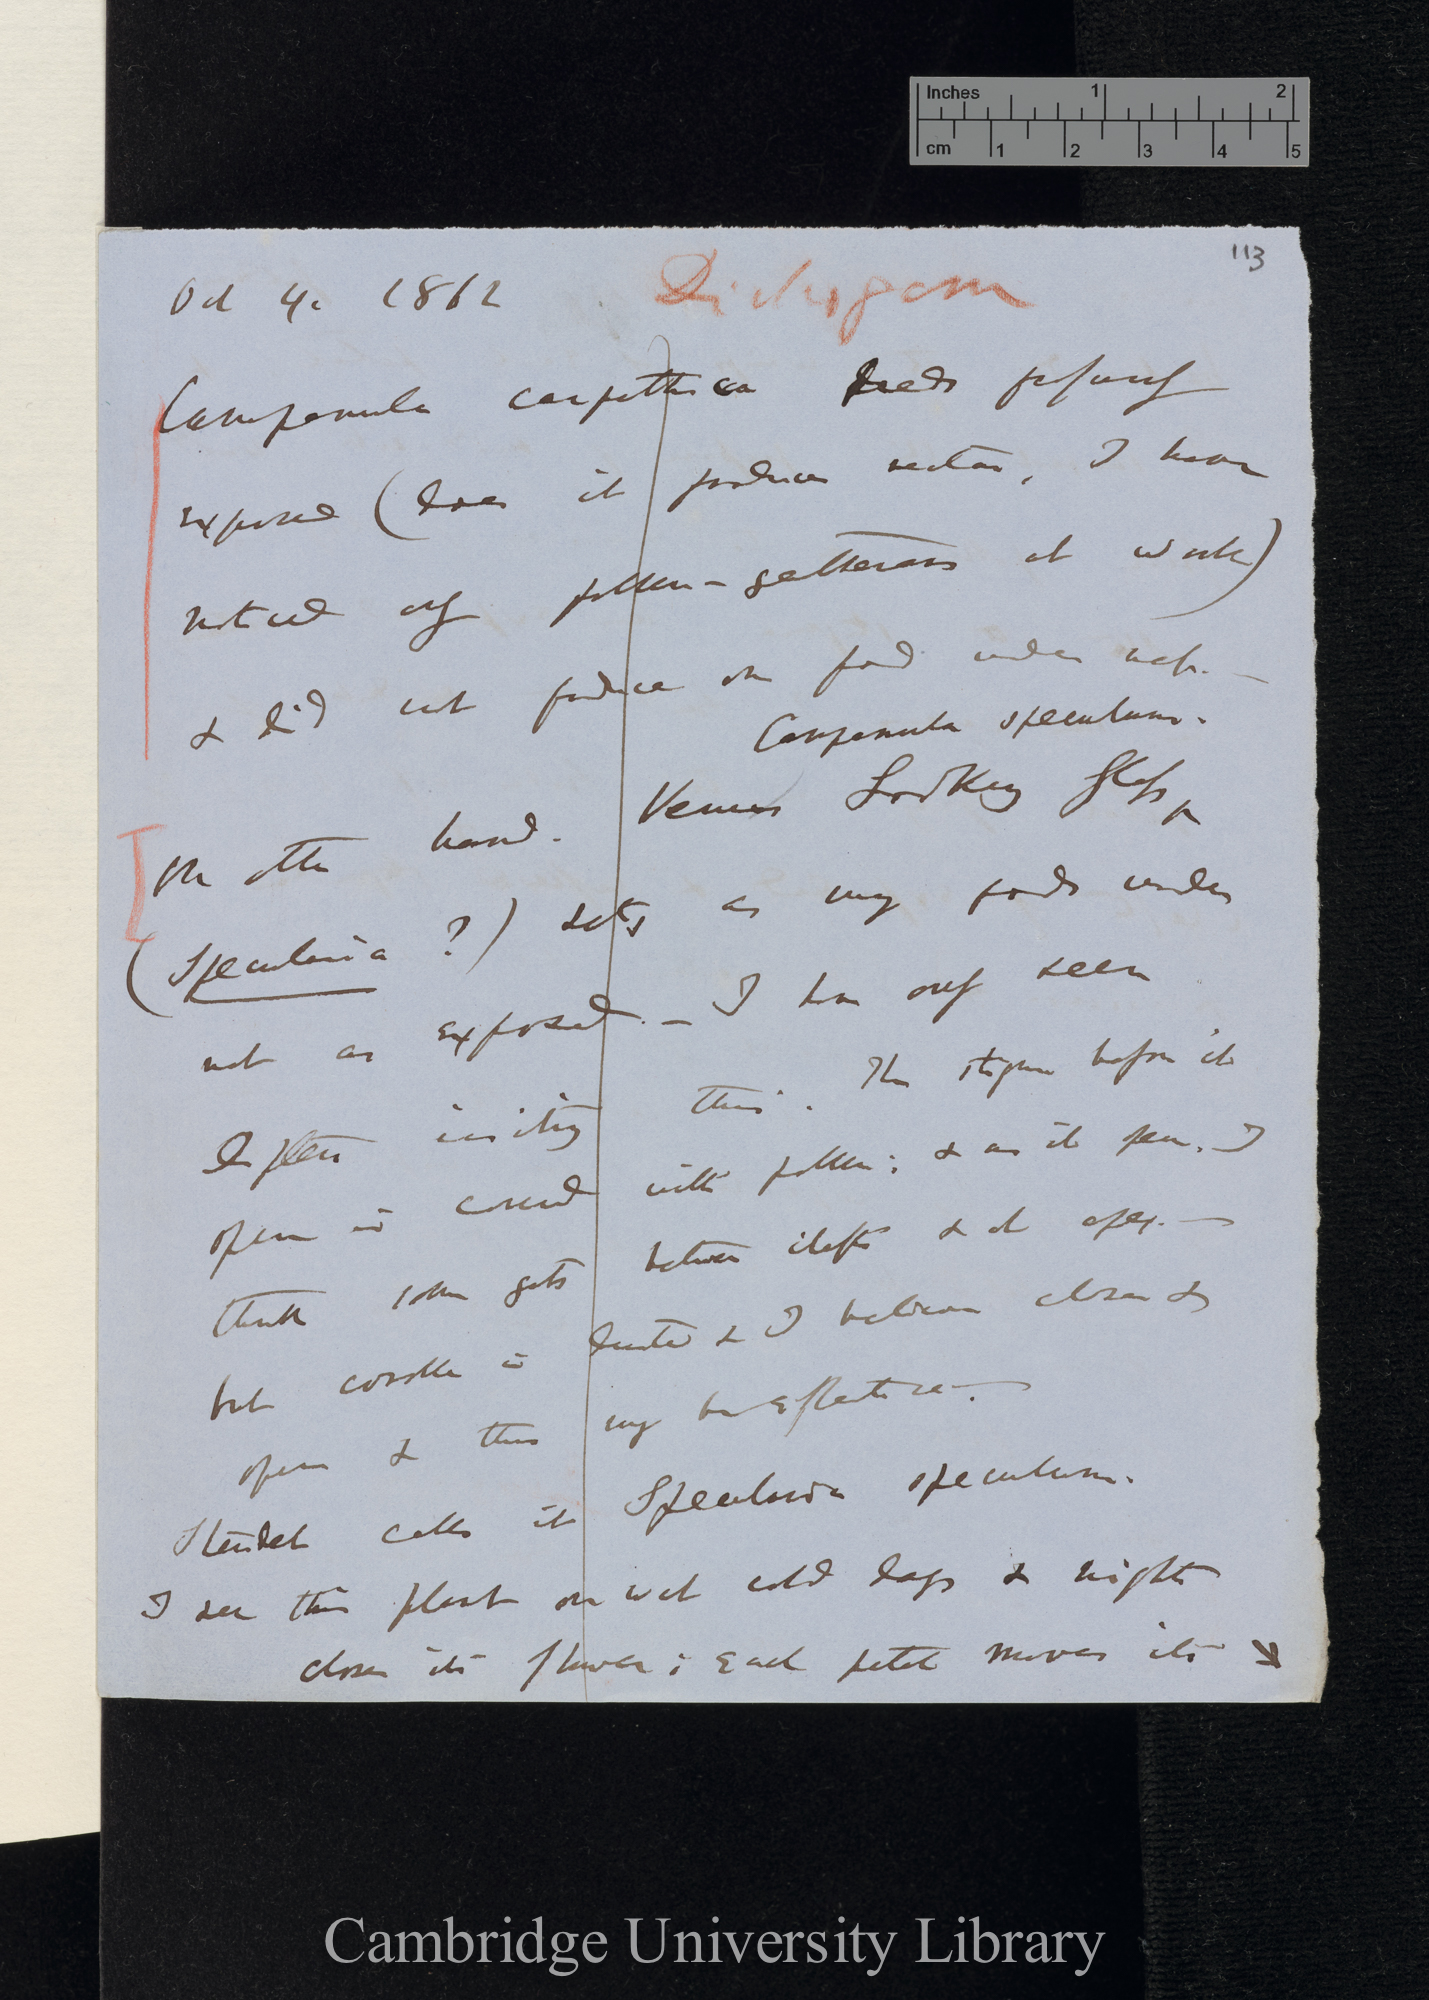 Inches 1 2
cm 1 2 3 4 5
113
Oct 4. 1862
Dichogam
Campanula carpathica seeds profusely
exposed (does it produce nectar, I have
noticed only pollen-gatherers at work)
& did not produce one pod under net.—
Campanula speculum.
On other hand. Venus Looking Glass
(Specularia ?) sets as many pods under
net as exposed.— I have only seen
Diptera visiting this. The stigma before it
open is covered with pollen; & as it open, I
think some gets between clefts & at apex.—
but corolla is & I believe closes &
open & this may be effective.—
Steudel calls it Specularia speculum.
I see this plant on wet cold days & nights
closes its flower; each petal moves its
Cambridge University Library